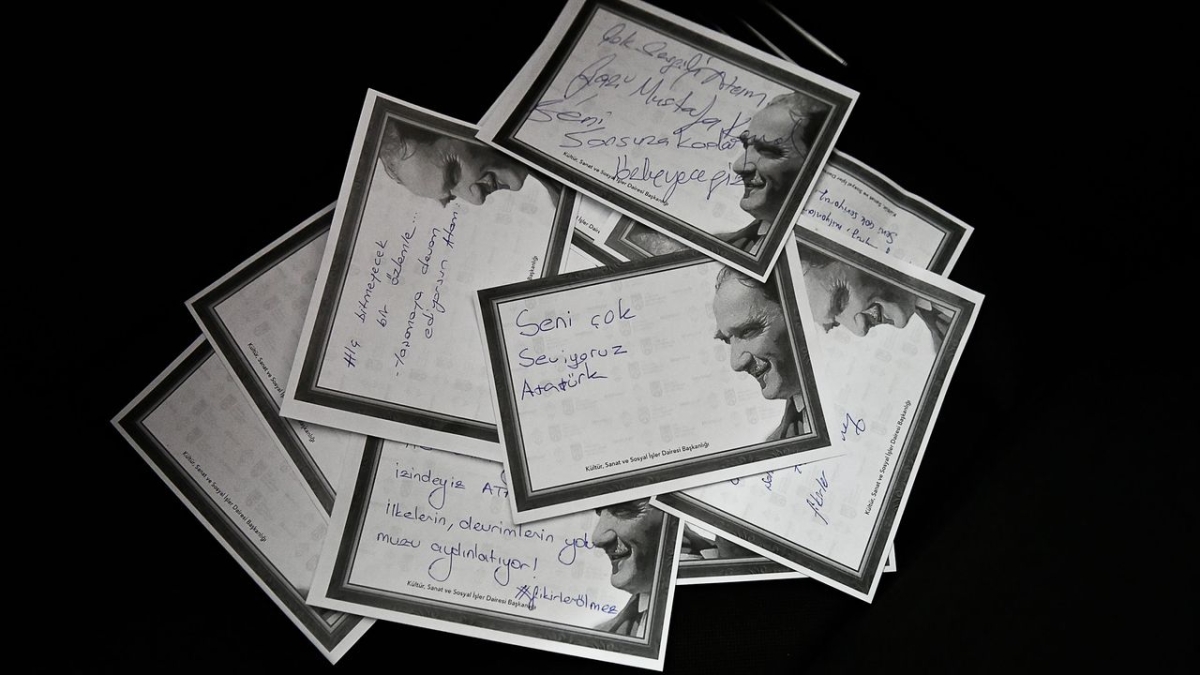 Çok Sevgili Atam
Gazi Mustafa Kemal
Seni
Sonsuza Kadar
Kültür, Sanat ve Sosyal İşler Dairesi Başkanlığı
Hiç bitmeyecek
bir özlemle...
Yaşamaya devam
ediyorsun Atam.
Seni çok
Seviyoruz
Atatürk
Kültür, Sanat ve Sosyal İşler Dairesi Başkanlığı
izindeyiz
ilkelerin, devrimlerin yolu
muzu aydınlatıyor!
#fikirlerölmez
Kültür, Sanat ve Sosyal İşler Dairesi Başkanlığı
Seni çok seviyoruz
fikirler
Kültür, Sanat ve Sosyal İşler Dairesi Başkanlığı
Kültür, Sanat ve Sosyal İşler Dairesi Başkanlığı
Kültür, Sanat ve Sosyal